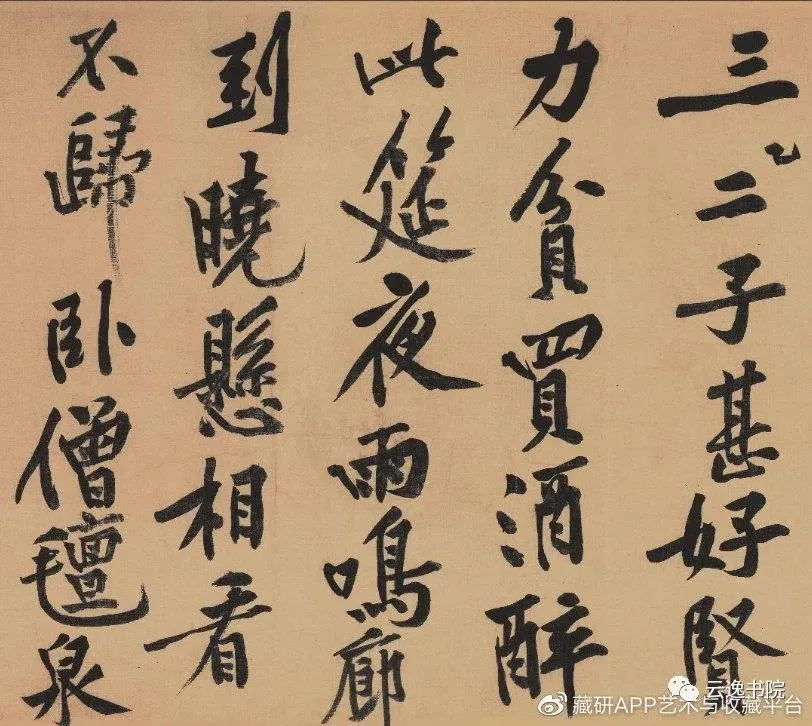 三二子甚好賢
力貧買酒醉
此筵夜雨鳴廊
到曉懸相看
不歸卧僧氊泉
云逸书院
藏研APP艺术与收藏平台